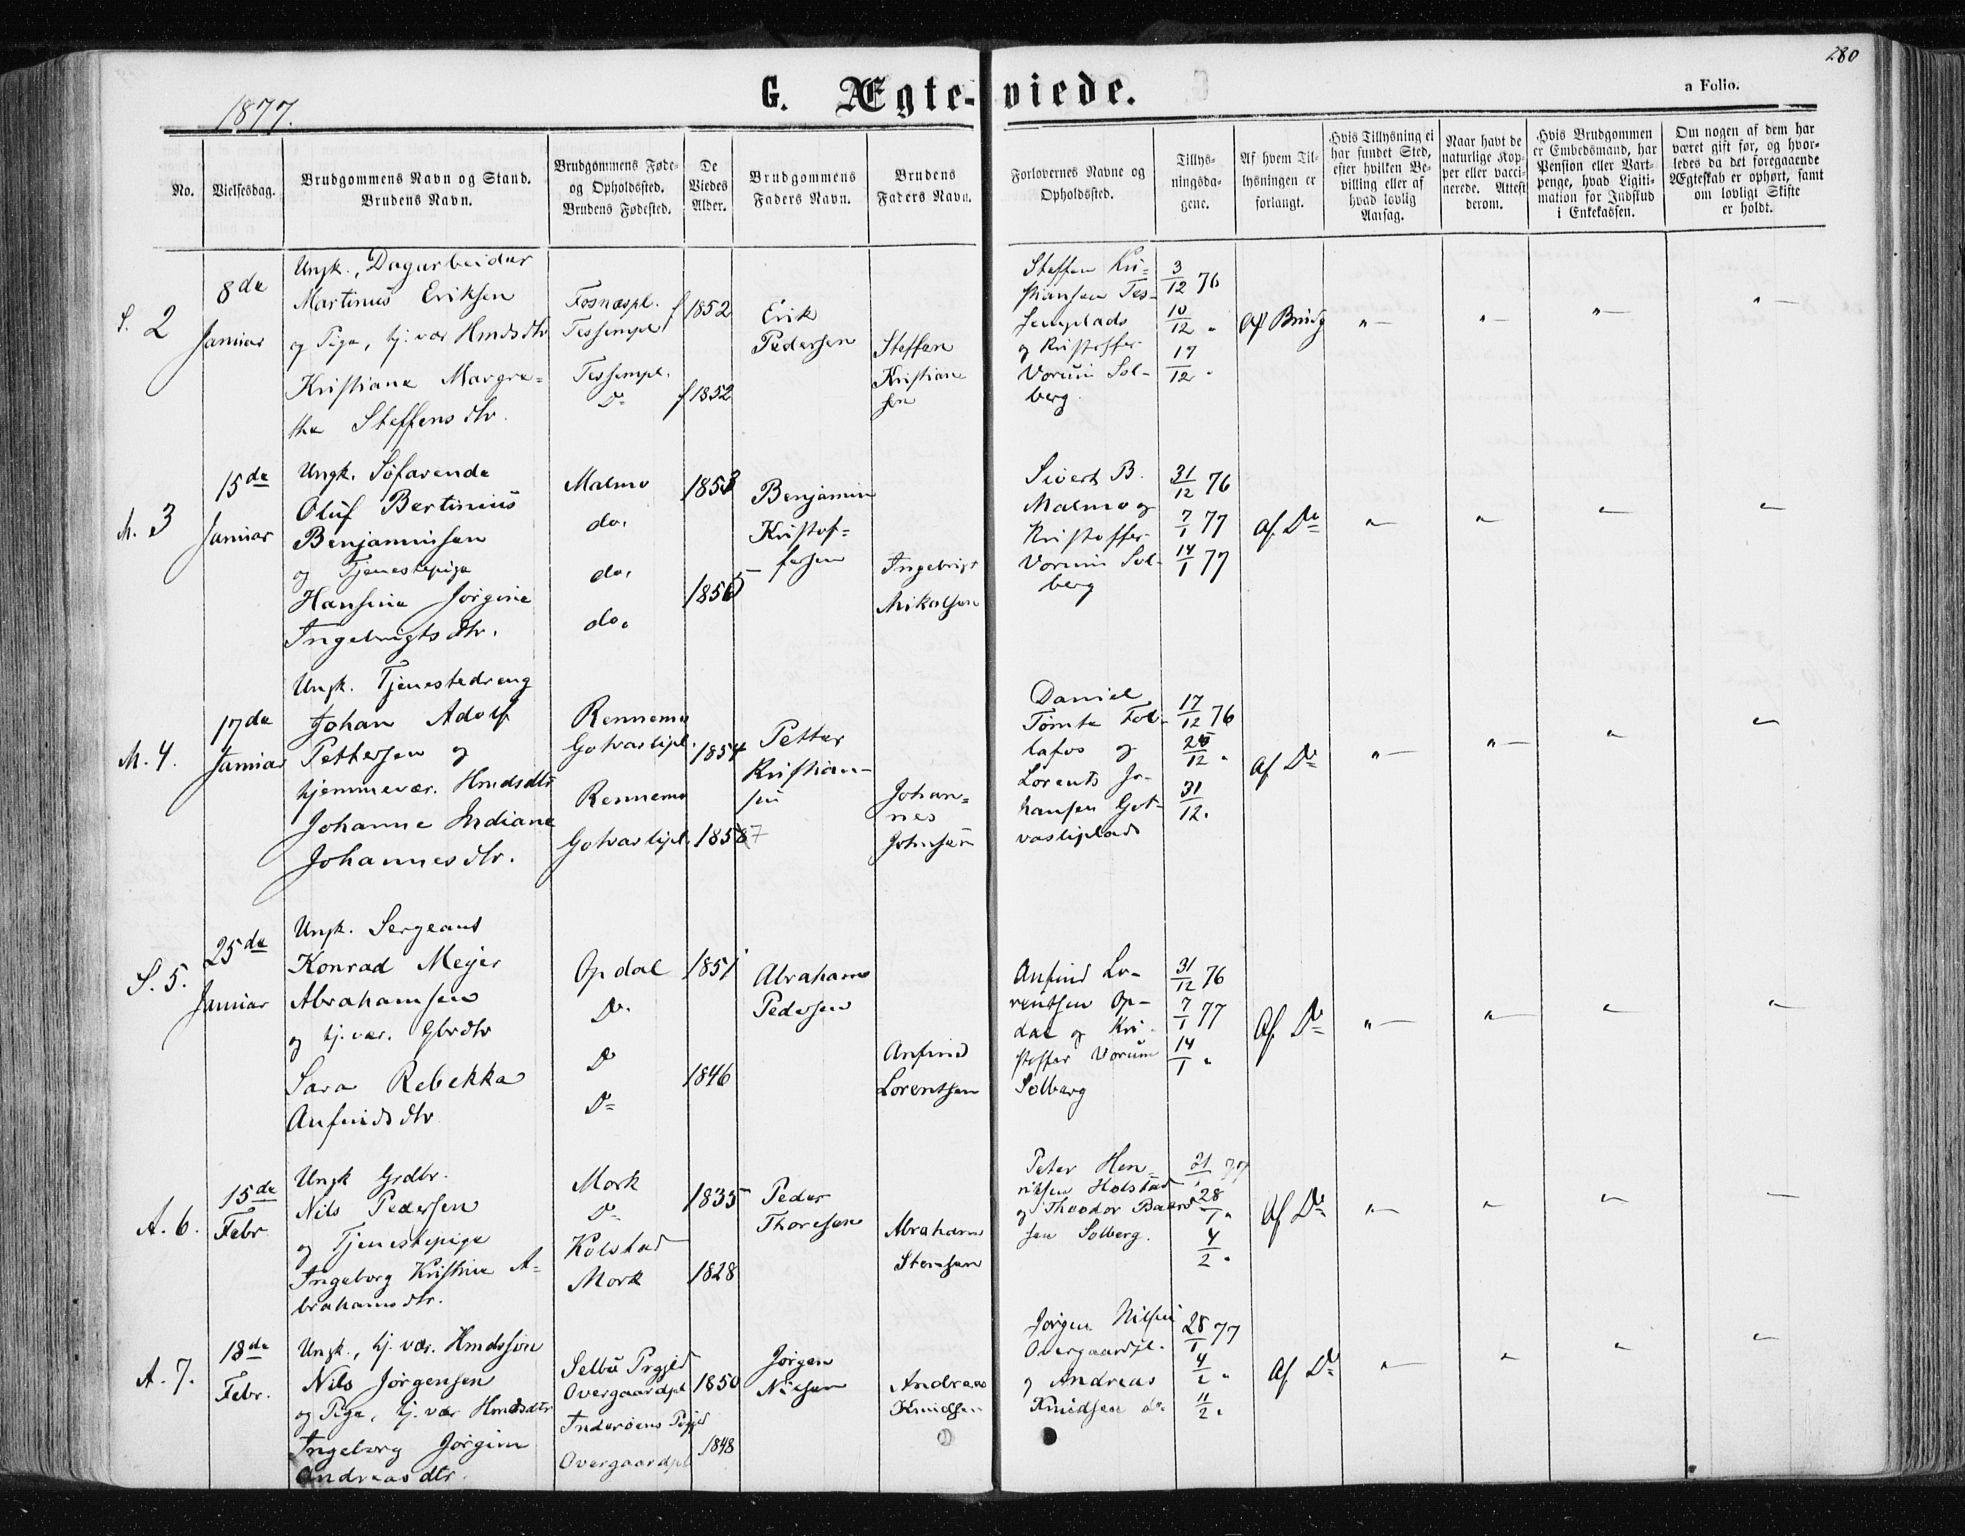 280
1877.
G. Ægte-viede.
a Folio.
No.
Vielsesdag.
Brudgommens Navn og Stand.
Brudens Navn.
Brudgommens Føde-
og Opholdssted.
Brudens Fødested.
De
Viedes
Alder.
Brudgommens
Faders Navn.
Brudens
Faders Navn.
Forlovernes Navne og
Opholdssted.
Tillys-
ningsda-
gene.
Af hvem Til-
lysningen er
forlangt.
Hvis Tillysning ei
har fundet Sted,
efter hvilken Be-
villing eller af
hvad lovlig
Aarsag.
Naar havt de
naturlige Kop-
per eller vacci-
nerede. Attest
derom.
Hvis Brudgommen
er Embedsmand, har
Pension eller Vart-
penge, hvad Ligiti-
mation for Indskud
i Enkekassen.
Om nogen af dem har
været gift før, og hvor-
ledes da det foregaaende
Ægteskab er ophørt, samt
om lovligt Skifte
er holdt.
S. 2
8de
Januar
Ungk., Dagarbeider
Martinus Eriksen
og Pige, hj. vær Hmdsdtr
Kristiane Margre-
the Steffensdtr.
Fosnæspl.
Tessempl
Tessempl.
Do
f 1852
f 1852
Erik
Pedersen
Steffen
Kristian
sen
Steffen Kri-
stiansen Tes-
semplads
og Kristoffer
Vorum Sol-
berg.
3/12 76
10/12 "
17/12 "
Af Brudg
"— "— "— "—
M. 3
15de
Januar
Ungk. Söfarende
Oluf Bertinius
Benjaminsen
og Tjenestepige
Hansine Jörgine
Ingebrigtsdtr.
Malmo
do.
do.
do.
1853
1855
Benjamin
Kristof-
fersen
Ingebrigt
Mikalsen
Sivert B.
Malmo og
Kristoffer
Vorum Sol-
berg
31/12 76
7/1 77
14/1 77
Af Do
"— "— "— "—
M. 4.
17de
Januar
Ungk. Tjenestedreng
Johan Adolf
Pettersen og
hjemmevær. Hmdsdtr
Johanne Indiane
Johannesdtr.
Rennemo
Gotvaslipl.
Rennemo
Gotvaslipl.
1854
1857
Petter
Kristian-
sen
Johan-
nes
Johnsen
Daniel
Tømte Fol-
lafos og
Lorents Jo-
hansen Got-
vasliplads
17/12 76
25/12 "
31/12 "
Af Do
"— "— "— "—
S. 5.
25de
Januar
Ungk. Sergeant
Konrad Mejer
Abrahamsen
og hj. vær. Gbrdtr
Sara Rebekka
Anfindsdtr
Opdal
Do
Do
Do
1851
1846
Abraham
Pedersen
Anfind
Lorentsen
Anfind Lo-
rentsen Op-
dal og Kri-
stoffer Vorum
Solberg
31/12 76
7/1 77
14/1 "
Af Do
"— "— "— "—
A. 6.
15de
Febr
Ungk Grdbr.
Nils Pedersen
og Tjenestepige
Ingeborg Kristine A-
brahamsdtr.
Mork
Do
Kolstad
Mork
1835
1828
Peder
Thoresen
Abraham
Stensen
Peter Hen-
riksen Holstad
og Theodor Baard
sen Solberg.
21/1 77
28/1 "
4/2 "
Af Do
"— "— "— "—
A. 7.
18de
Febr.
Ungk., hj. vær. Hmdssön
Nils Jörgensen
og Pige, hj. vær Hmdsdtr
Ingeborg Jörgine
Andreasdtr.
Selbu Prgjld
Overgaardpl
Inderöens Prgjld
Overgaardpl
1850
1848
Jörgen
Nilsen
Andreas
Knudsen
Jörgen Nilsen
Overgaardpl.
og Andreas
Knudsen do
28/1 77
4/2 "
11/2 "
Af Do
"— "— "— "—